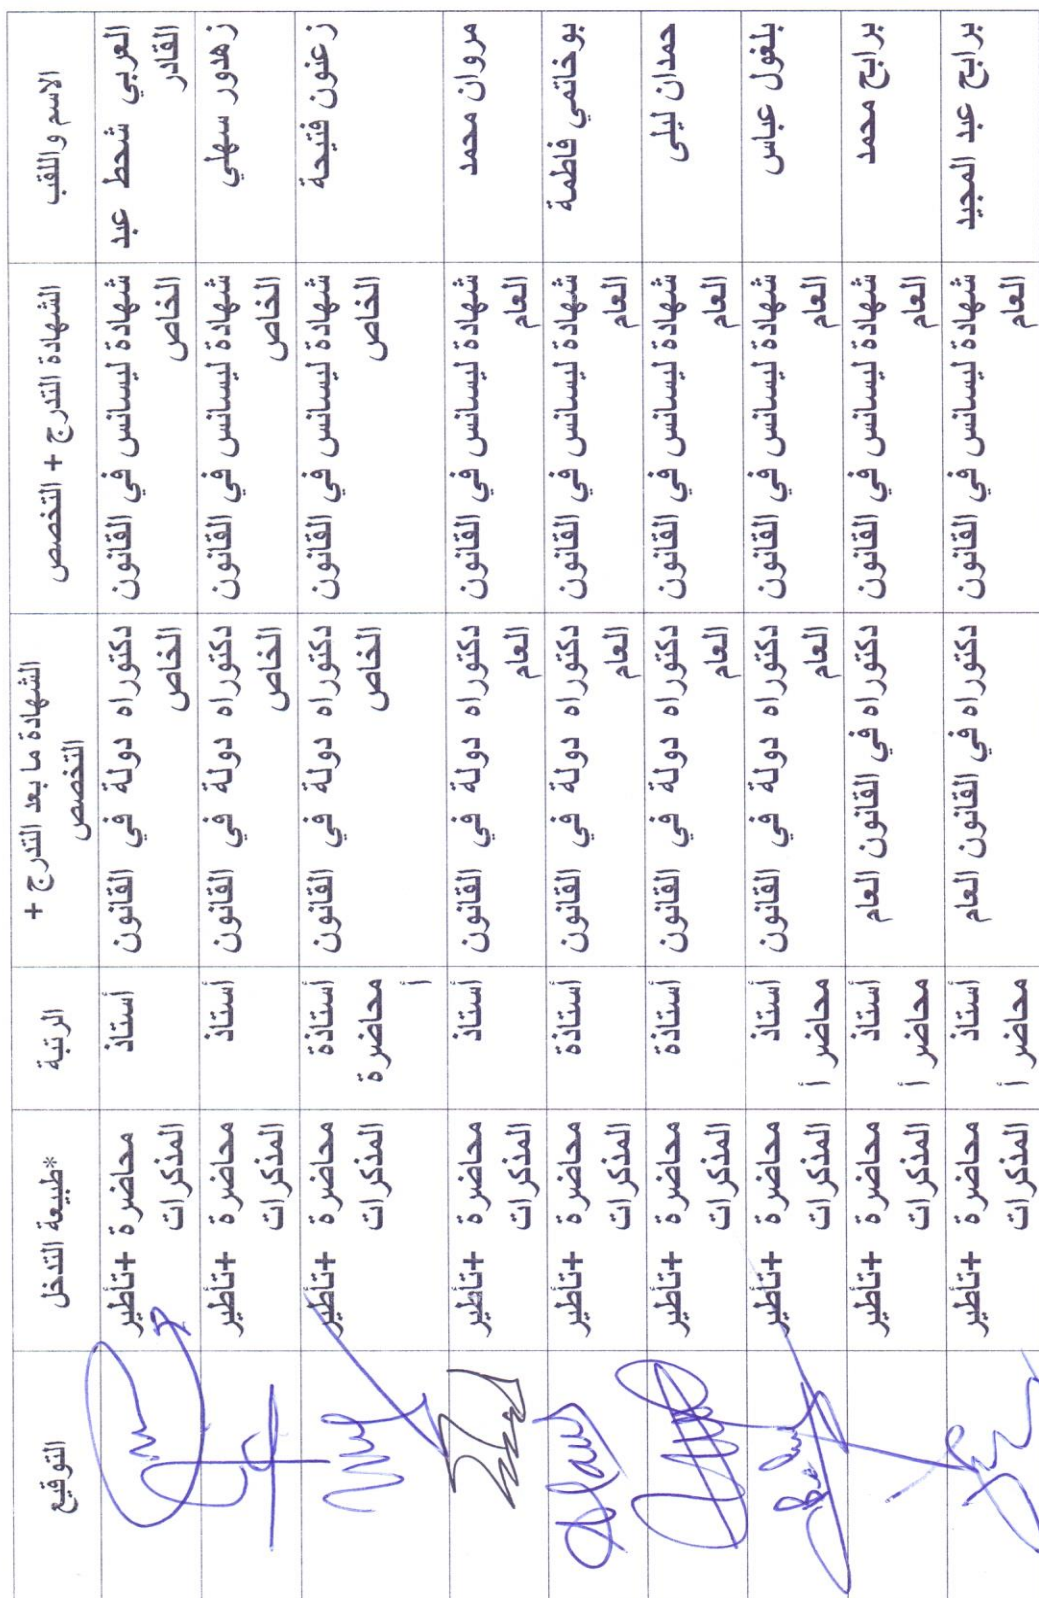 الاسم واللقب
الشهادة التدرج + التخصص
الشهادة ما بعد التدرج +
التخصص
الرتبة
*طبيعة التدخل
التوقيع
العربي شحط عبد
القادر
شهادة ليسانس في القانون
الخاص
دكتوراه دولة في القانون
الخاص
أستاذ
محاضرة +تأطير
المذكرات
زهدور سهلي
شهادة ليسانس في القانون
الخاص
دكتوراه دولة في القانون
الخاص
أستاذ
محاضرة +تأطير
المذكرات
زعنون فتيحة
شهادة ليسانس في القانون
الخاص
دكتوراه دولة في القانون
الخاص
أستاذة
محاضرة
أ
محاضرة +تأطير
المذكرات
مروان محمد
شهادة ليسانس في القانون
العام
دكتوراه دولة في القانون
العام
أستاذ
محاضرة +تأطير
المذكرات
بوخاتمي فاطمة
شهادة ليسانس في القانون
العام
دكتوراه دولة في القانون
العام
أستاذة
محاضرة +تأطير
المذكرات
حمدان ليلى
شهادة ليسانس في القانون
العام
دكتوراه دولة في القانون
العام
أستاذة
محاضرة +تأطير
المذكرات
بلغول عباس
شهادة ليسانس في القانون
العام
دكتوراه دولة في القانون
العام
أستاذ
محاضر أ
محاضرة +تأطير
المذكرات
برابح محمد
شهادة ليسانس في القانون
العام
دكتوراه في القانون العام
أستاذ
محاضر أ
محاضرة +تأطير
المذكرات
برابح عبد المجيد
شهادة ليسانس في القانون
العام
دكتوراه في القانون العام
أستاذ
محاضر أ
محاضرة +تأطير
المذكرات